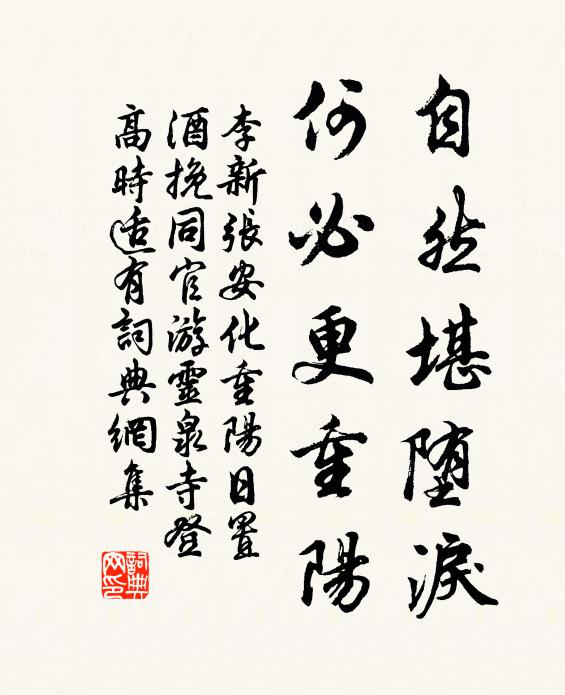 自然堪墮淚
何必更重陽
李新張安化重陽日置
酒挽同官游靈泉寺登
高時适有詞典網集
詞典網印